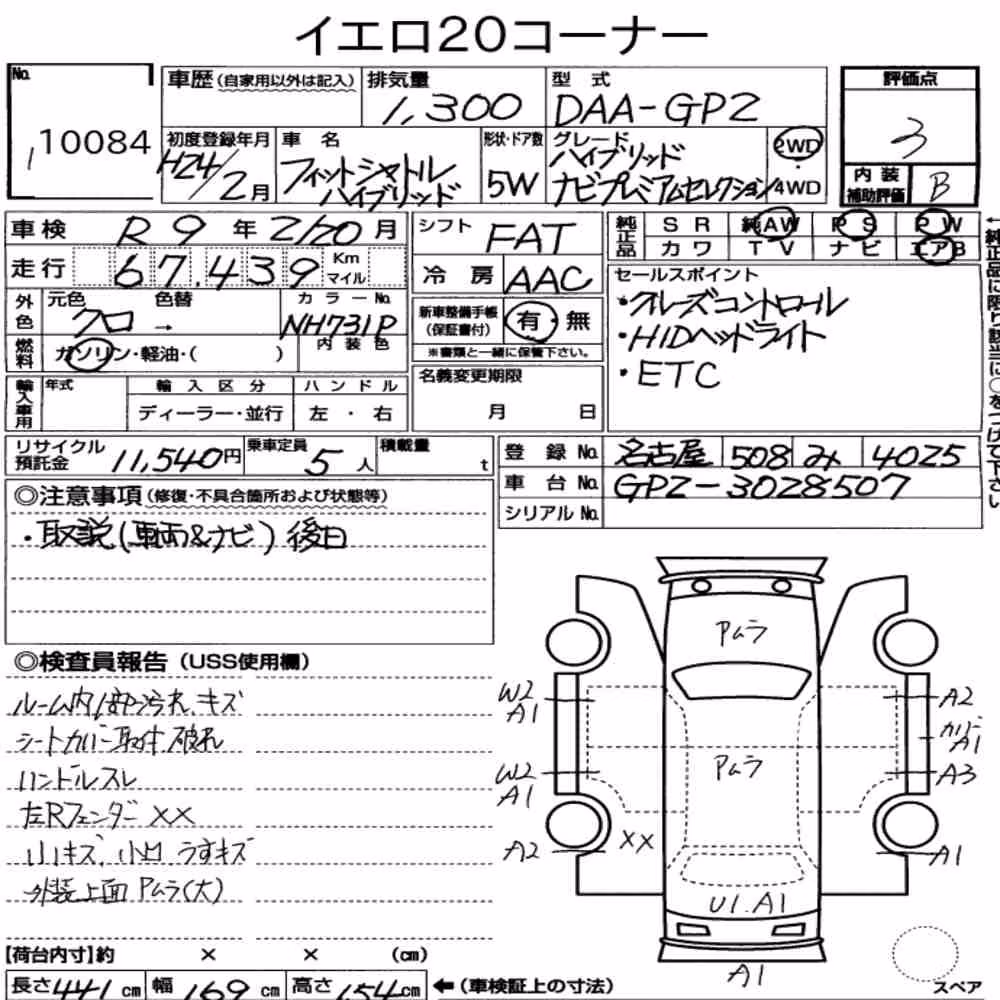 イエロ20コーナー
No. 10084
1
車歴 (自家用以外は記入)
排気量 1,300
型式 DAA-GP2
評価点 3
初度登録年月 H24/2月
車名 フィットシャトルハイブリッド
形状・ドア数 5W
グレード ハイブリッド ナビプレミアムセレクション
2WD/4WD
内装補助評価 B
車検 R9年2/20月
シフト FAT
純正品 SR 純AW PS PW
カワ TV ナビ エアB
走行 67,439 Km マイル
冷房 AAC
セールスポイント
・クルーズコントロール
・HIDヘッドライト
・ETC
外色 元色 クロ → 色替 カラーNo. NH731P
新車整備手帳(保証書付) 有・無
※書類と一緒に保管下さい。
燃料 ガソリン・軽油・( )
内装色
輸入車用 年式 輸入区分 ハンドル
ディーラー・並行 左・右
名義変更期限
月 日
←純正品に限り該当に○をつけて下さい
リサイクル預託金 11,540円
乗車定員 5人
積載量 t
登録No. 名古屋 508 み 4025
車台No. GP2-3028507
シリアルNo.
◎注意事項(修復・不具合箇所および状態等)
・取説(車両&ナビ)後日
◎検査員報告(USS使用欄)
ルーム内 汚れ、キズ
シートカバー取付 破れ
ハンドルスレ
左Rフェンダー XX
小キズ、小凹 うすキズ
外装上面 Pムラ(大)
Pムラ
W2
A1
A2
カバー
A1
Pムラ
W2
A1
A3
XX
A2
A1
U1.A1
A1
スペア
【荷台内寸】約 × × (cm)
長さ441cm 幅169cm 高さ154cm ←(車検証上の寸法)